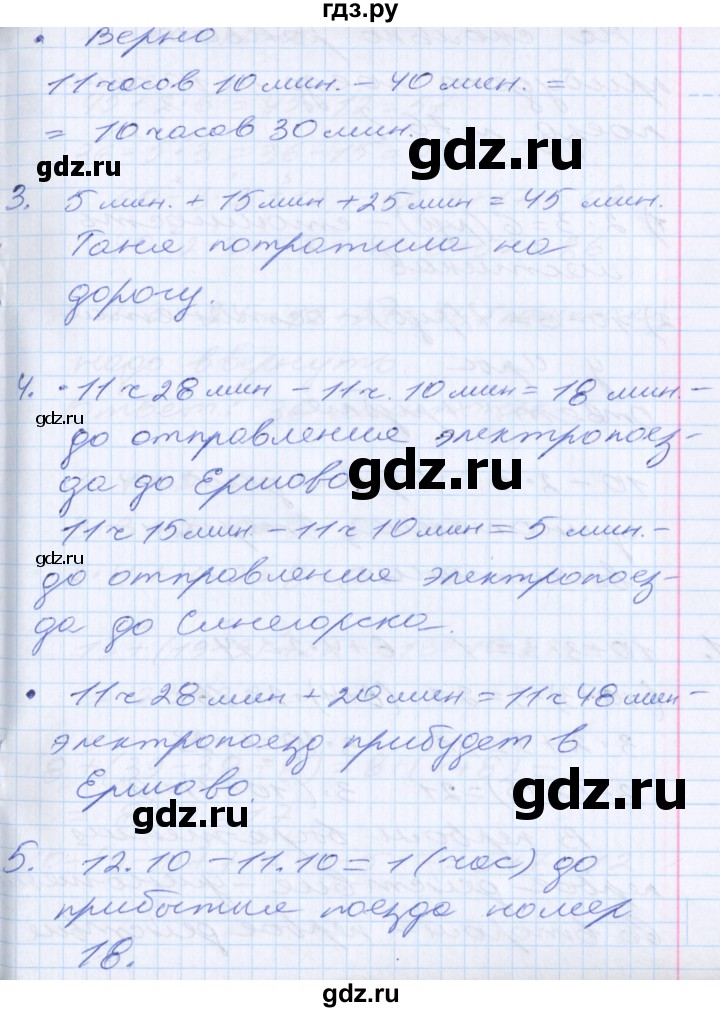 гдз.ру
• Верно
11 часов 10 мин. – 40 мин. =
= 10 часов 30 мин.
gdz.ru
gdz.ru
3. 5 мин. + 15 мин + 25 мин = 45 мин.
Таня потратила на
дорогу.
gdz.ru
4. • 11 ч 28 мин – 11 ч. 10 мин = 18 мин. –
gdz.ru
до отправление электропоез-
да до Ершово
gdz.ru
11 ч 15 мин. – 11 ч 10 мин = 5 мин. –
gdz.ru
до отправление электропоез-
да до Синегорска.
• 11 ч 28 мин + 20 мин = 11 ч 48 мин –
электропоезд прибудет в
Ершово.
gdz.ru
gdz.ru
5. 12.10 – 11.10 = 1 (час) до
прибытие поезда номер
18.
gdz.ru
gdz.ru